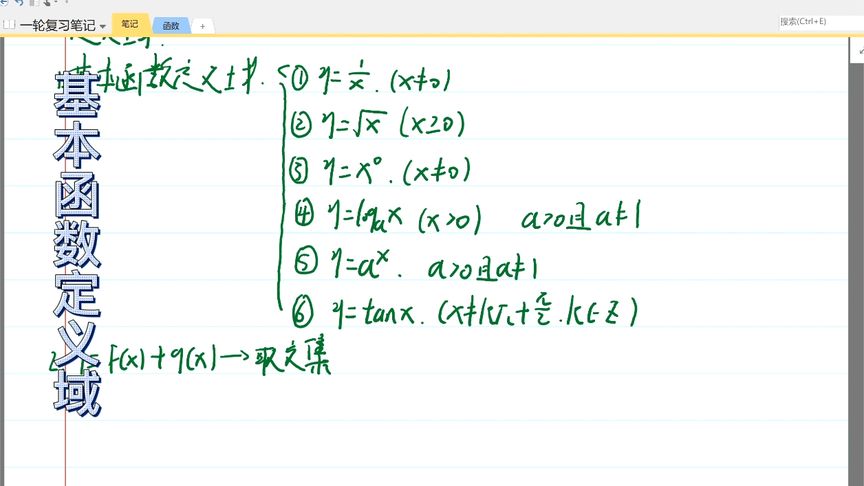 一轮复习笔记 笔记 函数 +
搜索(Ctrl+E)
基本函数定义域
基本函数定义域.
① y=1/x. (x≠0)
② y=√x (x≥0)
③ y=x⁰. (x≠0)
④ y=logₐx (x>0) a>0且a≠1
⑤ y=aˣ. a>0且a≠1
⑥ y=tanx. (x≠kπ+π/2. k∈Z)
f(x)+g(x)→取交集